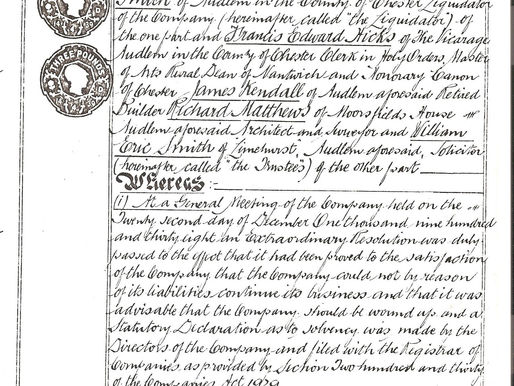 Smith of Audlem in the County of Chester Liquidator
of the Company (hereinafter called "the Liquidator) of
the one part and Francis Edward Hicks of The Vicarage
Audlem in the County of Chester Clerk in Holy Orders, Master
of Arts Rural Dean of Nantwich and Honorary Canon
of Chester James Kendall of Audlem aforesaid Retired
Builder Richard Matthews of Moorsfields House
Audlem aforesaid Architect and Surveyor and William
Eric Smith of "Linehurst", Audlem aforesaid, Solicitor
(hereinafter called "the Trustees") of the other part
Whereas:-
(i) At a General Meeting of the Company held on the
Twenty second day of December One thousand nine hundred
and thirty eight an Extraordinary Resolution was duly
passed to the effect that it had been proved to the satisfaction
of the Company that the Company could not by reason
of its liabilities continue its business and that it was
advisable that the Company should be wound up and a
Statutory Declaration as to solvency was made by the
Directors of the Company and filed with the Registrar of
Companies as provided by Section Two hundred and thirty
of the Companies Act 1929
THREE POUNDS